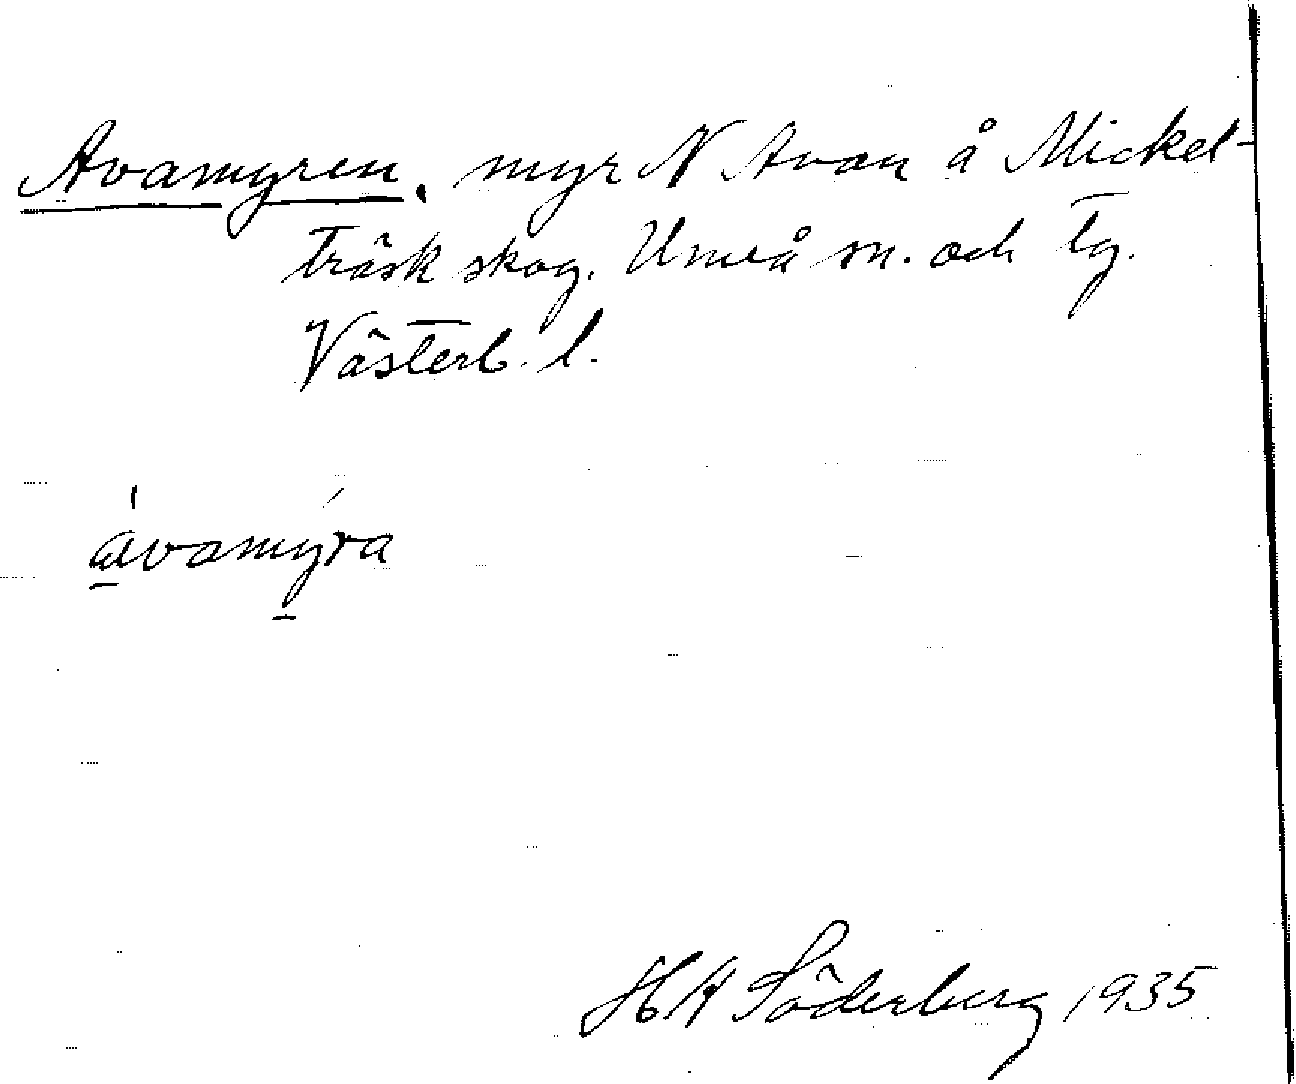 Avamyren, myr N Avan å Mickel-
träsk skog. Umeå sn. och tg.
Västerb. l.
ávamýra
H A Söderberg 1935